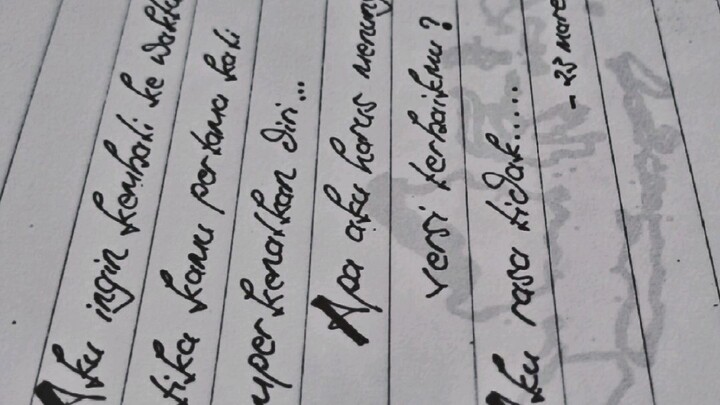 Aku ingin kembali ke waktu
tika kamu pertama kali
mperkenalkan diri...
Apa aku harus menung
versi terbaikmu?
Aku rasa tidak......
- 23 mare